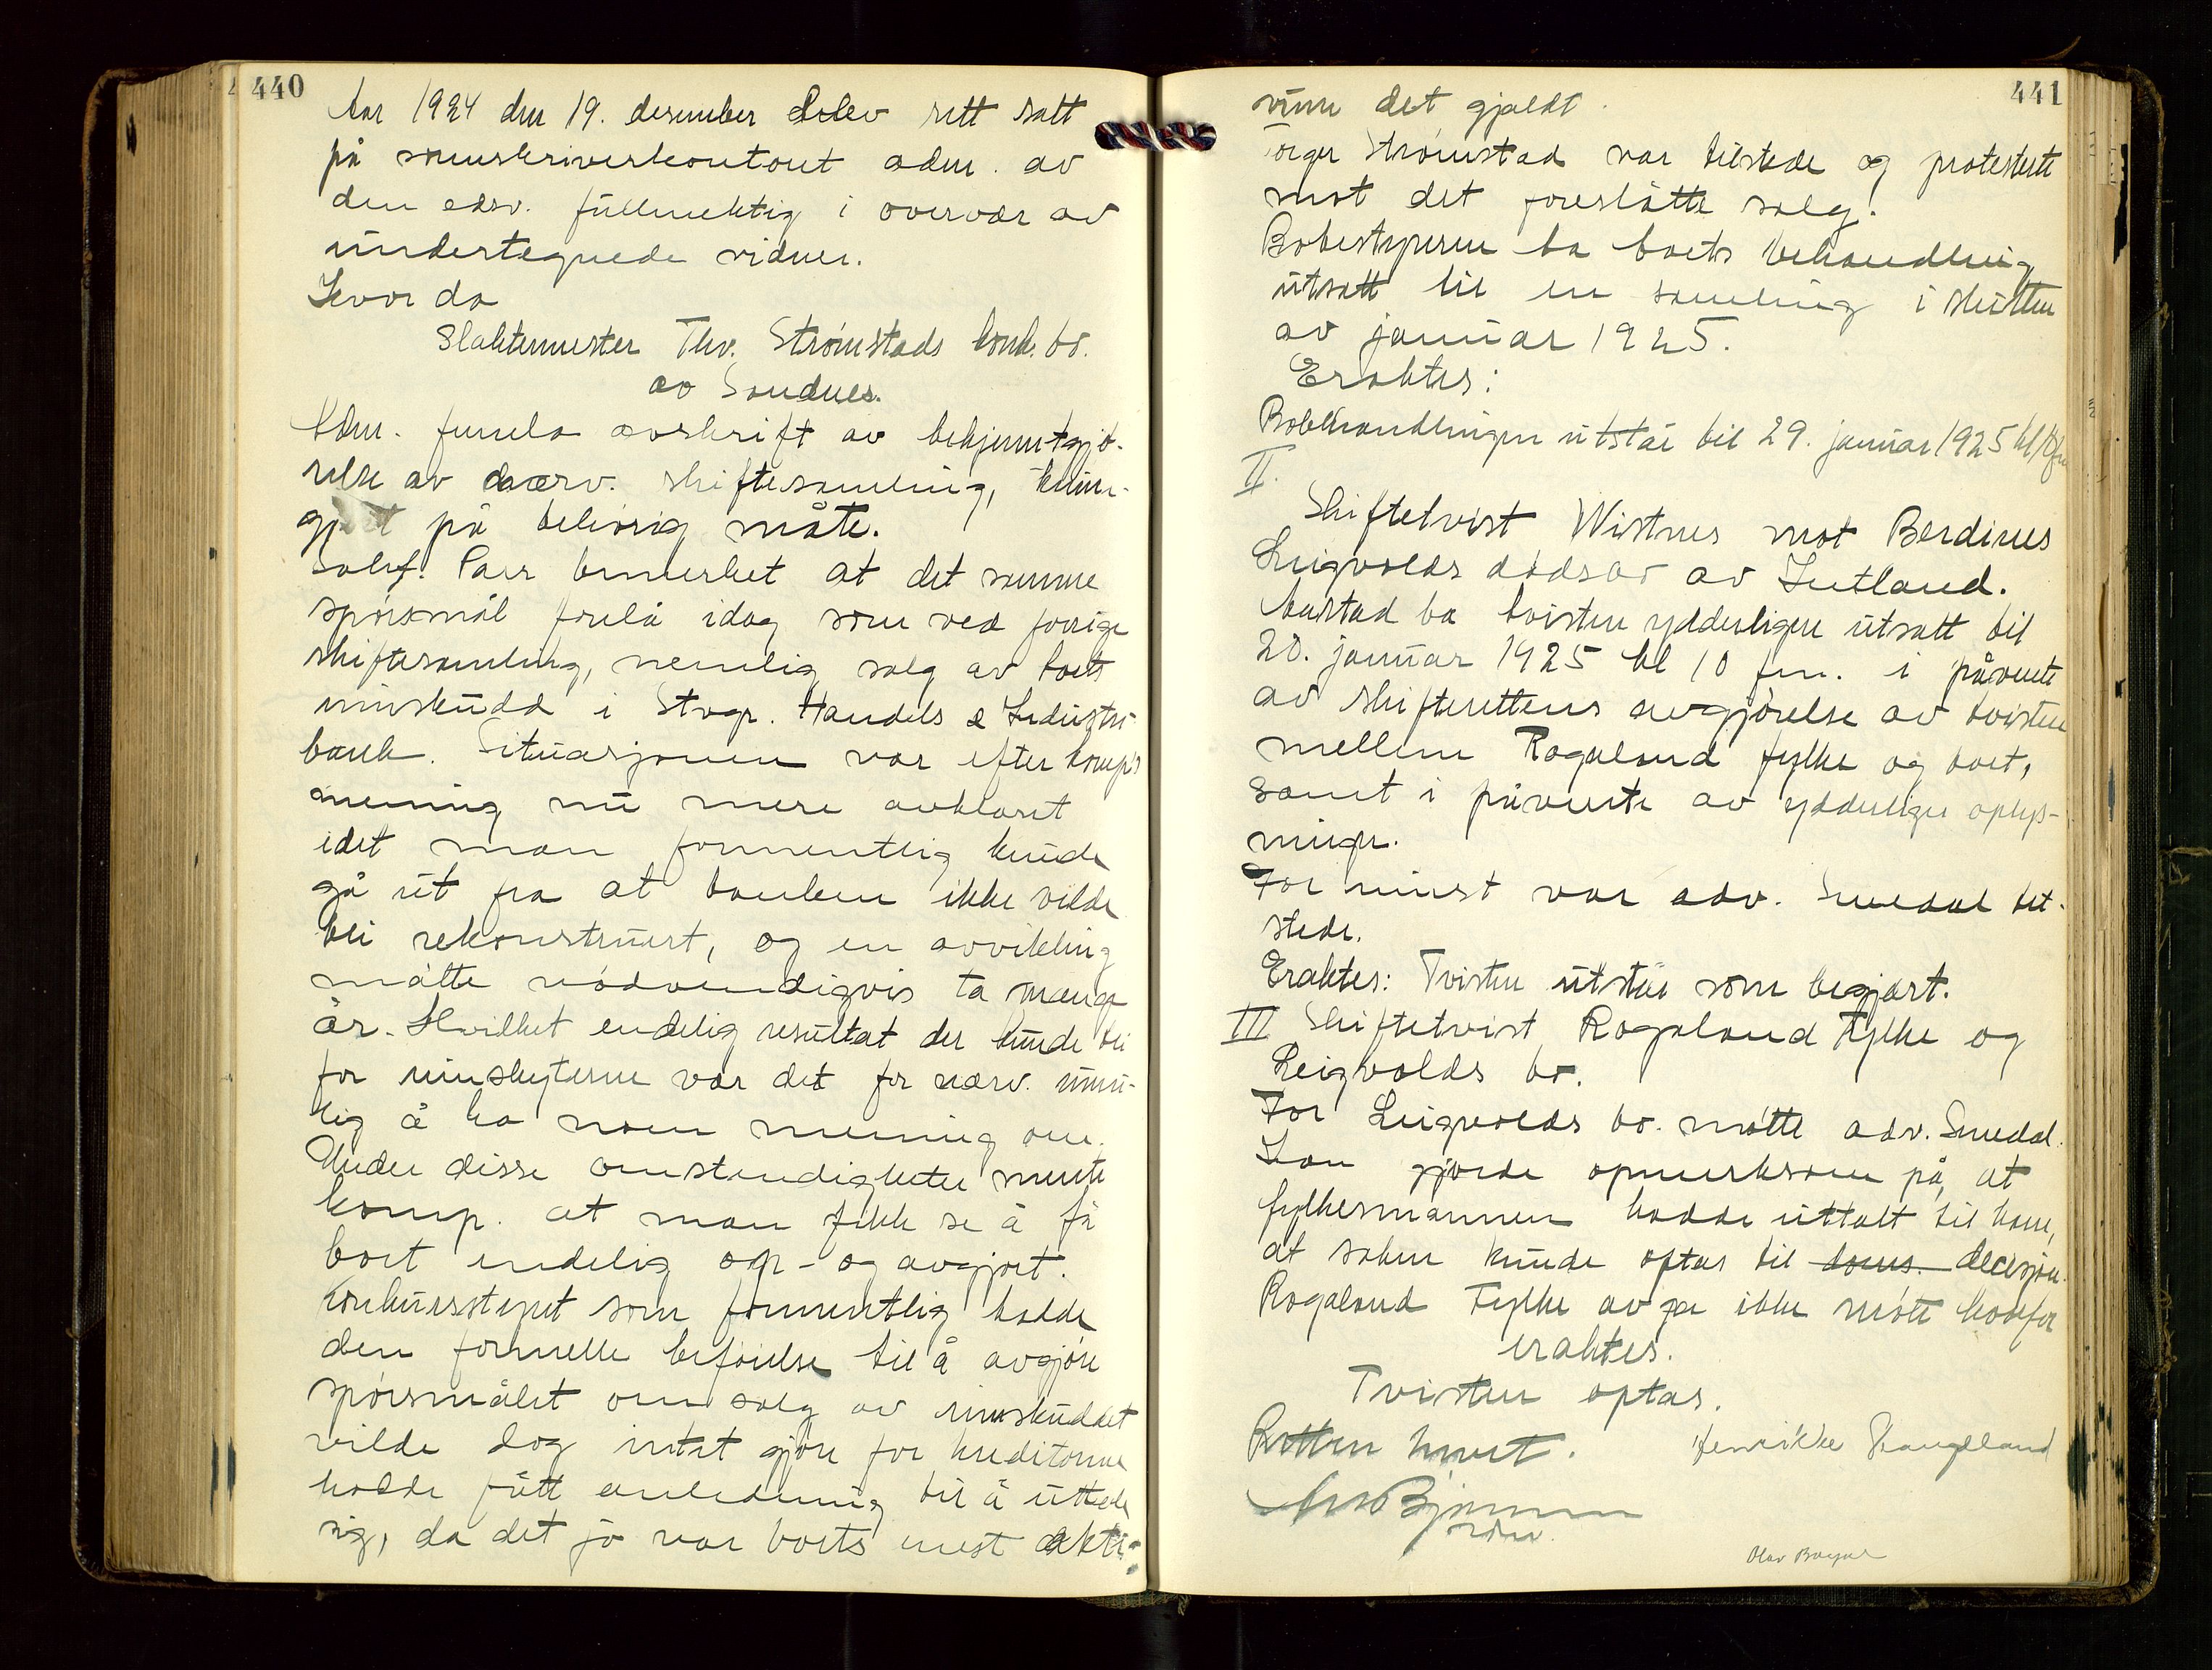 440
Aar 1924 den 19. desember blev rett satt
på sorenskriverkontoret adm. av
den edsv. fullmektig i overvær av
undertegnede vidner.
Hvor da
Slaktermester Thv. Strømstads konk. bo.
av Sandnes.
Adm. fremla avskrift av bekjentgjø-
relse av nærv. skiftesamling, kunn-
gjort på behørig måte.
Sakf. bemerket at det samme
spørsmål forelå idag som ved forrige
skiftesamling, nemlig salg av boets
innskudd i Stvgr. Handels & Industri-
bank. Situasjonen var efter komp's
mening nu mere avklaret
idet man formentlig kunde
gå ut fra at banken ikke vilde
bli rekonstruert, og en avvikling
måtte nødvendigvis ta mange
år. Hvilket endelig resultat der kunde bli
for innskyterne var det for nærv. umu-
lig å ha noen mening om.
Under disse omstendigheter mente
komp. at man fikk se å få
boet endelig op- og avgjort.
Konkursstyret som formentlig hadde
den formelle beføielse til å avgjøre
spørsmålet om salg av innskuddet
vilde dog intet gjøre før kreditorene
hadde fått anledning til å uttale
sig, da det jo var boets mest akti-
441
vum det gjaldt.
Torger Strømstad var tilstede og protesterte
mot det foreslåtte salg.
Bobestyreren ba boets behandling
utsatt til en samling i slutten
av januar 1925.
Eraktes:
Bobehandlingen utstår til 29. januar 1925 kl 10 fm
II.
Skiftetvist Wistnes mot Berdines
Leigvolds dødsbo av Jutland.
ba tvisten ydderligere utsatt til
20. januar 1925 kl 10 fm. i påvente
av skifterettens avgjørelse av tvisten
mellem Rogaland fylke og boet,
samt i påvente av ydderligere oplys-
ninger.
For var adv. Smedal til-
stede.
Eraktes: Tvisten utstår som begjært.
III Skiftetvist Rogaland Fylke og
Leigvolds bo.
For Leigvolds bo. møtte adv. Smedal.
Han gjorde opmerksom på, at
fylkesmannen hadde uttalt til ham,
at saken kunde optas til doms. decisjon.
Rogaland Fylke avga ikke møte hvorfor
eraktes.
Tvisten optas.
Retten hevet. Henrikke Haugeland
Bjørnsen
edsv.
Olav